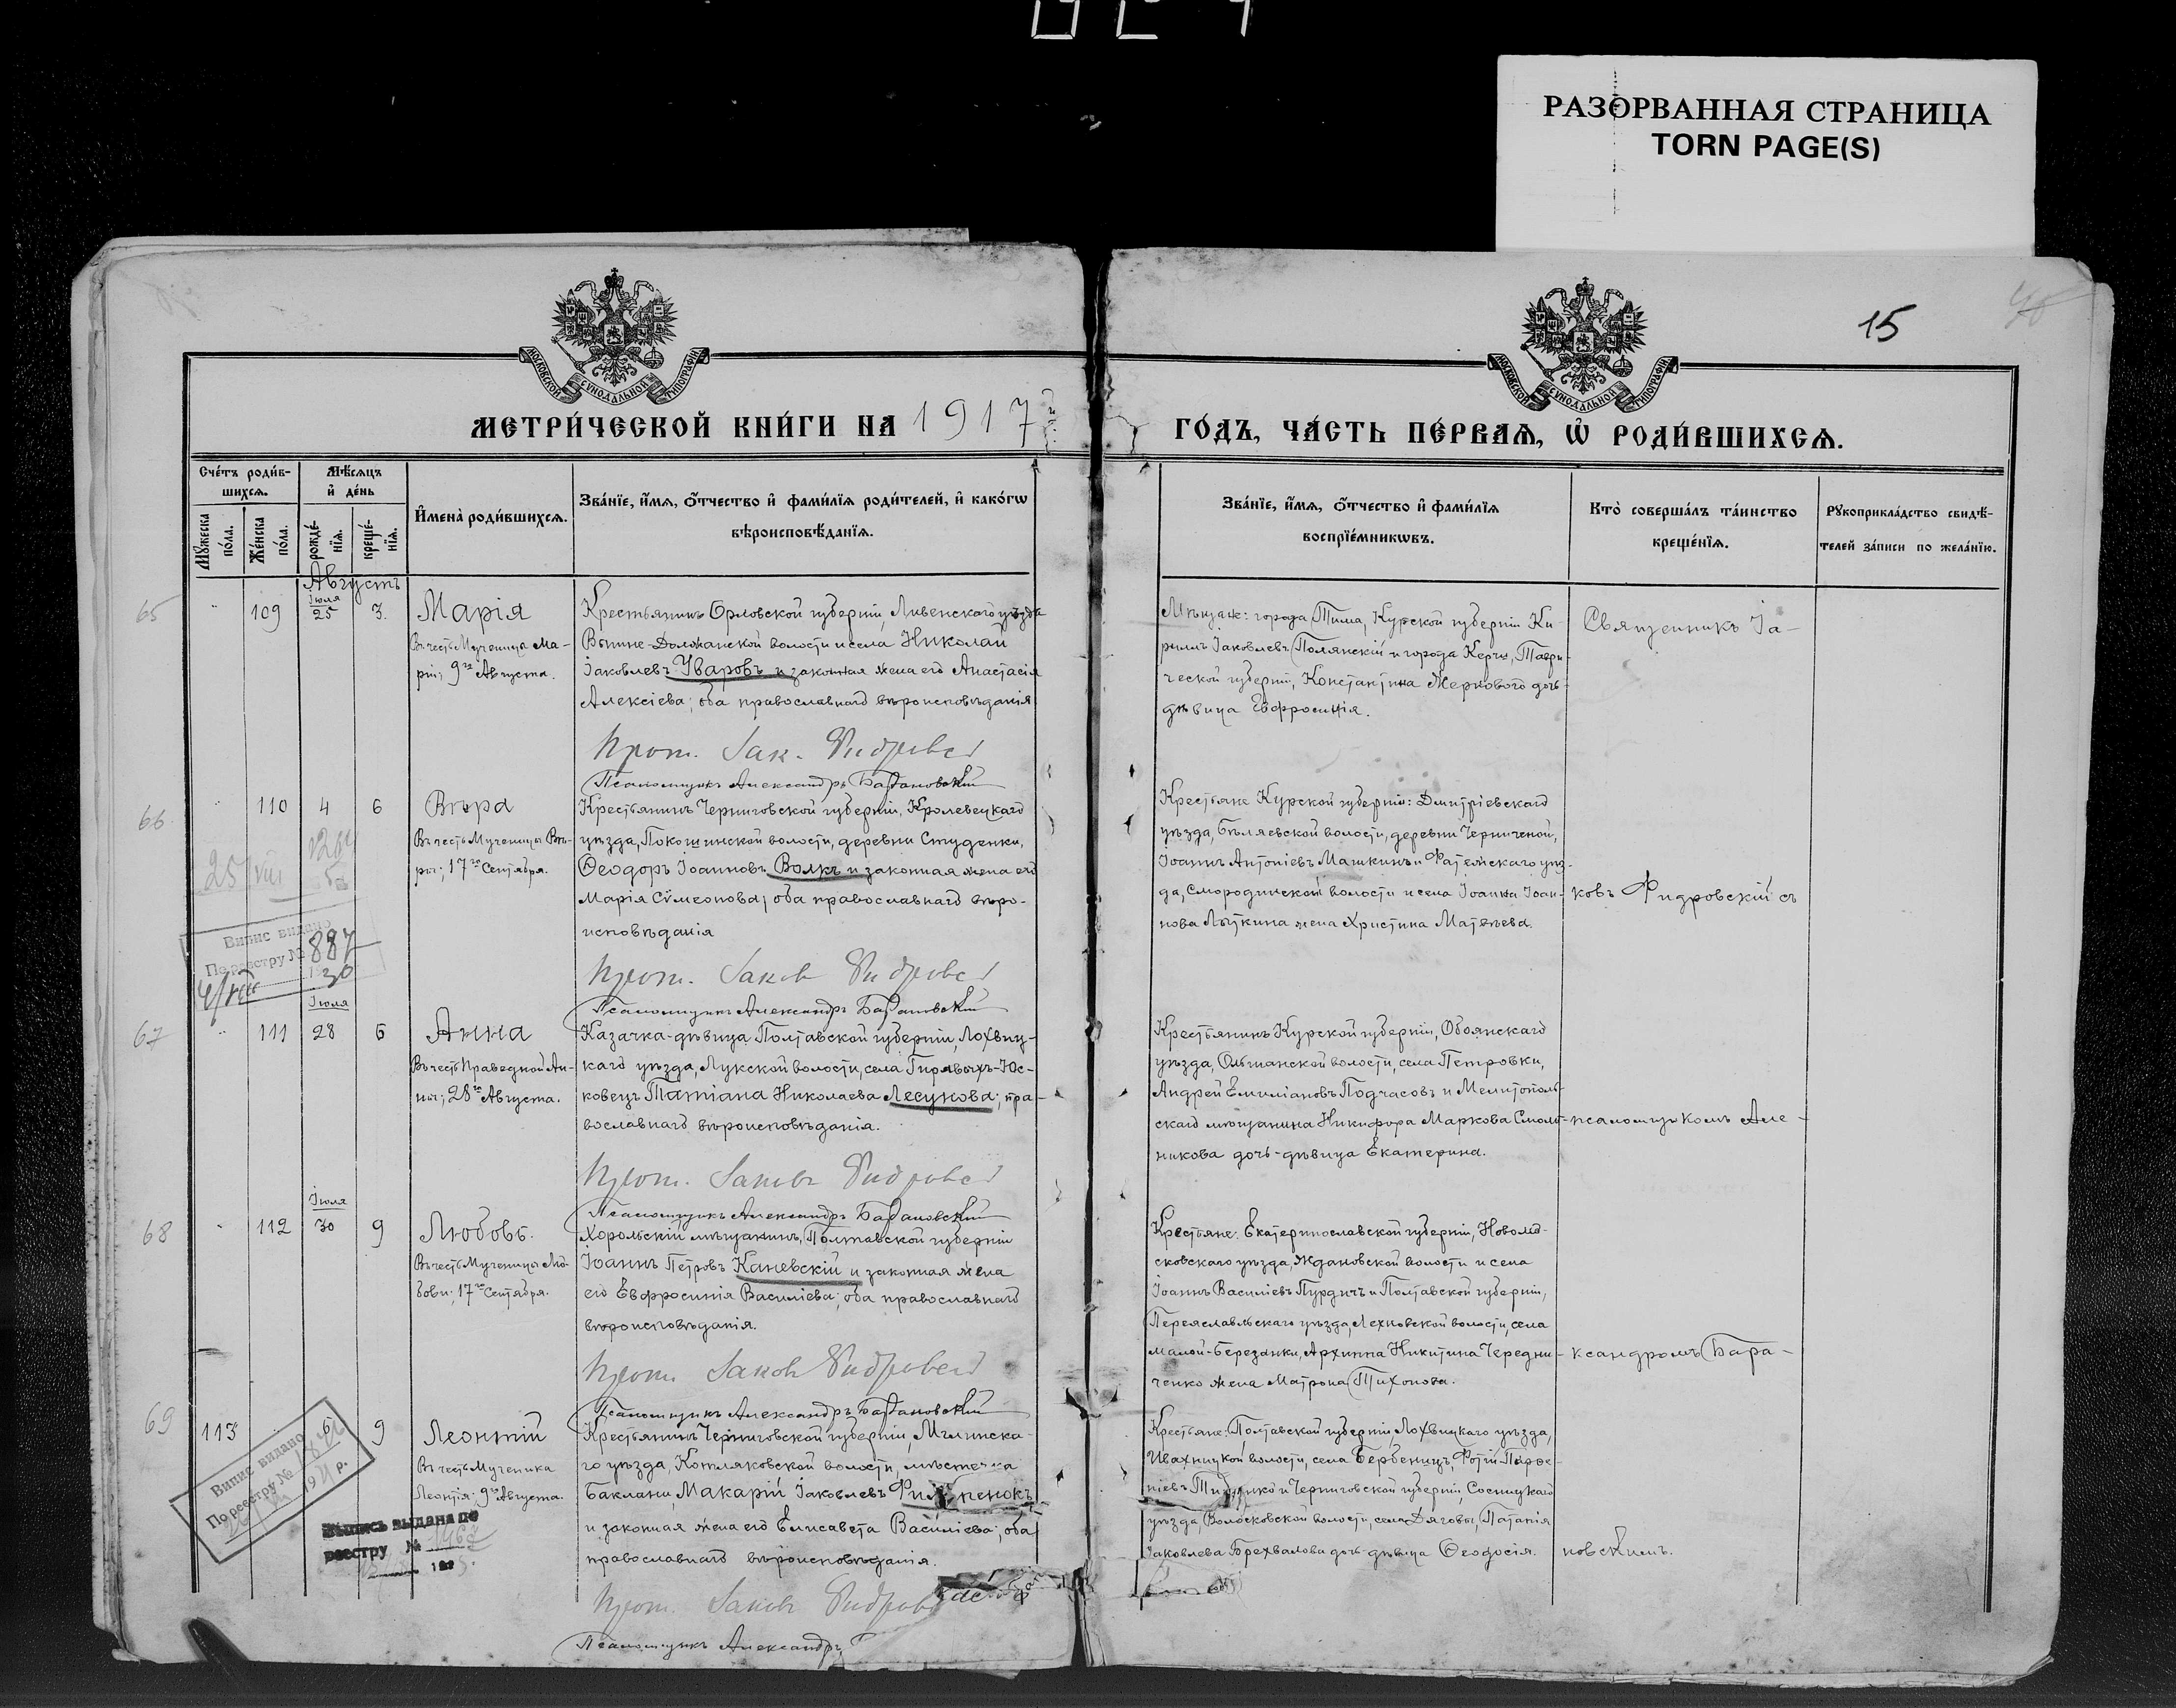 РАЗОРВАННАЯ СТРАНИЦА
TORN PAGE(S)
15
МОСКОВСКОЙ СѴНОДАЛЬНОЙ ТИПОГРАФІИ
МОСКОВСКОЙ СѴНОДАЛЬНОЙ ТИПОГРАФІИ
МЕТРИ́ЧЕСКОЙ КНИ́ГИ НА 1917
ГО́ДЪ, ЧА́СТЬ ПЕ́РВАѦ, Ѡ҆ РОДИ́ВШИХСѦ.
Сче́тъ роди́в-
шихсѧ.
Мѣ́сѧцъ
и҆ де́нь
Мꙋ́жеска
по́ла.
Же́нска
по́ла.
рожде́-
нїѧ.
креще́-
нїѧ.
И҆мена̀ роди́вшихсѧ.
Зва́нїе, и҆́мѧ, ѻ҆́тчество и҆ фами́лїѧ роди́телей, и҆ како́гѡ
вѣроисповѣ́данїѧ.
Зва́нїе, и҆́мѧ, ѻ҆́тчество и҆ фами́лїѧ
воспрїе́мникѡвъ.
Кто̀ соверша́лъ та́инство
креще́нїѧ.
Рꙋкоприкла́дство свидѣ́-
телей за́писи по жела́нїю.
Августъ
65
109
Іюля
25
3.
Марія
Въ честь Мученицы Ма-
ріи, 9го Августа.
Крестьянинъ Орловской губерніи, Ливенскаго уѣзда
Должанской волости и села Николай
Іаковлевъ Уваровъ и законная жена его Анастасія
Алексіева; оба православнаго вѣроисповѣданія
Прот. Іак.
Псаломщикъ Александръ Барановскій
Мѣщане: города Тима, Курской губерніи Ки-
риллъ Іаковлевъ Полянскій и города Керчи, Таври-
ческой губерніи, Константина Жеркового дочь-
дѣвица Евфросинія.
Священникъ Іа-
66
110
4
6
Вѣра
Въ честь Мученицы Вѣ-
ры; 17го Сентября.
Крестьянинъ Черниговской губерніи, Кролевецкаго
уѣзда, Покошинской волости, деревни Студенки,
Ѳеодоръ Іоанновъ Волкъ и законная жена его
Марія Сѵмеонова; оба православнаго вѣро-
исповѣданія
Прот. Іаковъ
Псаломщикъ Александръ Барановскій
Крестьяне Курской губерніи: Дмитріевскаго
уѣзда, Бѣляевской волости, деревни Черниченой,
Іоаннъ Антоніевъ Машкинъ и Фатежскаго уѣз-
да, Смородинской волости и села Іоанна Іоан-
нова Лыткина жена Христина Матвѣева.
ковъ Фидровскій съ
25/VIII
Випис видано
По реєстру № 887
1930
67
111
Іюля
28
6
Анна
Въ честь Праведной Ан-
ны; 28го Августа.
Казачка-дѣвица Полтавской губерніи, Лохвиц-
каго уѣзда, Лукской волости, села Гирявыхъ-Ис-
ковецъ Татіана Николаева Лесунова; пра-
вославнаго вѣроисповѣданія.
Прот. Іаковъ
Псаломщикъ Александръ Барановскій
Крестьянинъ Курской губерніи, Обоянскаго
уѣзда, Ольшанской волости, села Петровки,
Андрей Емиліановъ Подчасовъ и Мелитополь-
скаго мѣщанина Никифора Маркова Смоль-
никова дочь-дѣвица Екатерина.
псаломщикомъ Але-
68
112
Іюля
30
9
Любовь.
Въ честь Мученицы Лю-
бови; 17го Сентября.
Хорольскій мѣщанинъ, Полтавской губерніи
Іоаннъ Петровъ Каневскій и законная жена
его Евфросинія Василіева; оба православнаго
вѣроисповѣданія.
Прот. Іаковъ
Псаломщикъ Александръ Барановскій
Крестьяне: Екатеринославской губерніи, Новомо-
сковскаго уѣзда, Ждановской волости и села
Іоаннъ Василіевъ Пурдичъ и Полтавской губерніи,
Переяславльскаго уѣзда, Лехновской волости, села
Малой-Березанки, Архиппа Никитина Чередни-
ченко жена Матрона Тихонова.
ксандромъ Бара-
69
113
6
9
Леонтій
Въ честь Мученика
Леонтія; 9го Августа.
Крестьянинъ Черниговской губерніи, Мглинска-
го уѣзда, Котляковской волости, мѣстечка
Баклани, Макарій Іаковлевъ
и законная жена его Елисавета Василіева; оба
православнаго вѣроисповѣданія.
Прот. Іаковъ
Псаломщикъ Александръ
Крестьяне: Полтавской губерніи, Лохвицкаго уѣзда,
Ивахницкой волости, села Бербеницъ, Фотій
и Черниговской губерніи, Сосницкаго
уѣзда, Волосковской волости, села Дяговы,
Іаковлева Брехвалова дочь-дѣвица Ѳеодосія.
новскимъ.
Випис видано
По реєстру №
Выпись выдана по
реестру №